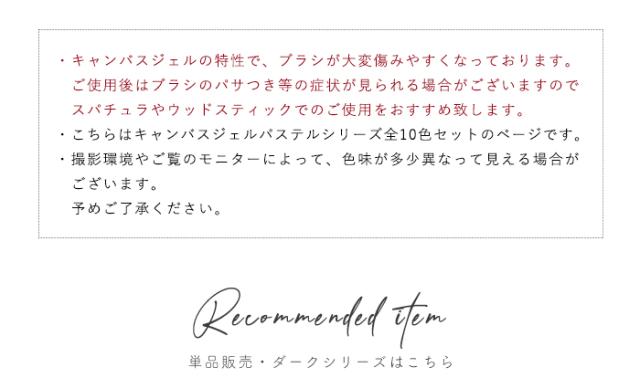 ・キャンバスジェルの特性で、ブラシが大変傷みやすくなっております。
ご使用後はブラシのパサつき等の症状が見られる場合がございますので
スパチュラやウッドスティックでのご使用をおすすめ致します。
・こちらはキャンバスジェルパステルシリーズ全10色セットのページです。
・撮影環境やご覧のモニターによって、色味が多少異なって見える場合が
ございます。
予めご了承ください。
Recommended item
単品販売・ダークシリーズはこちら